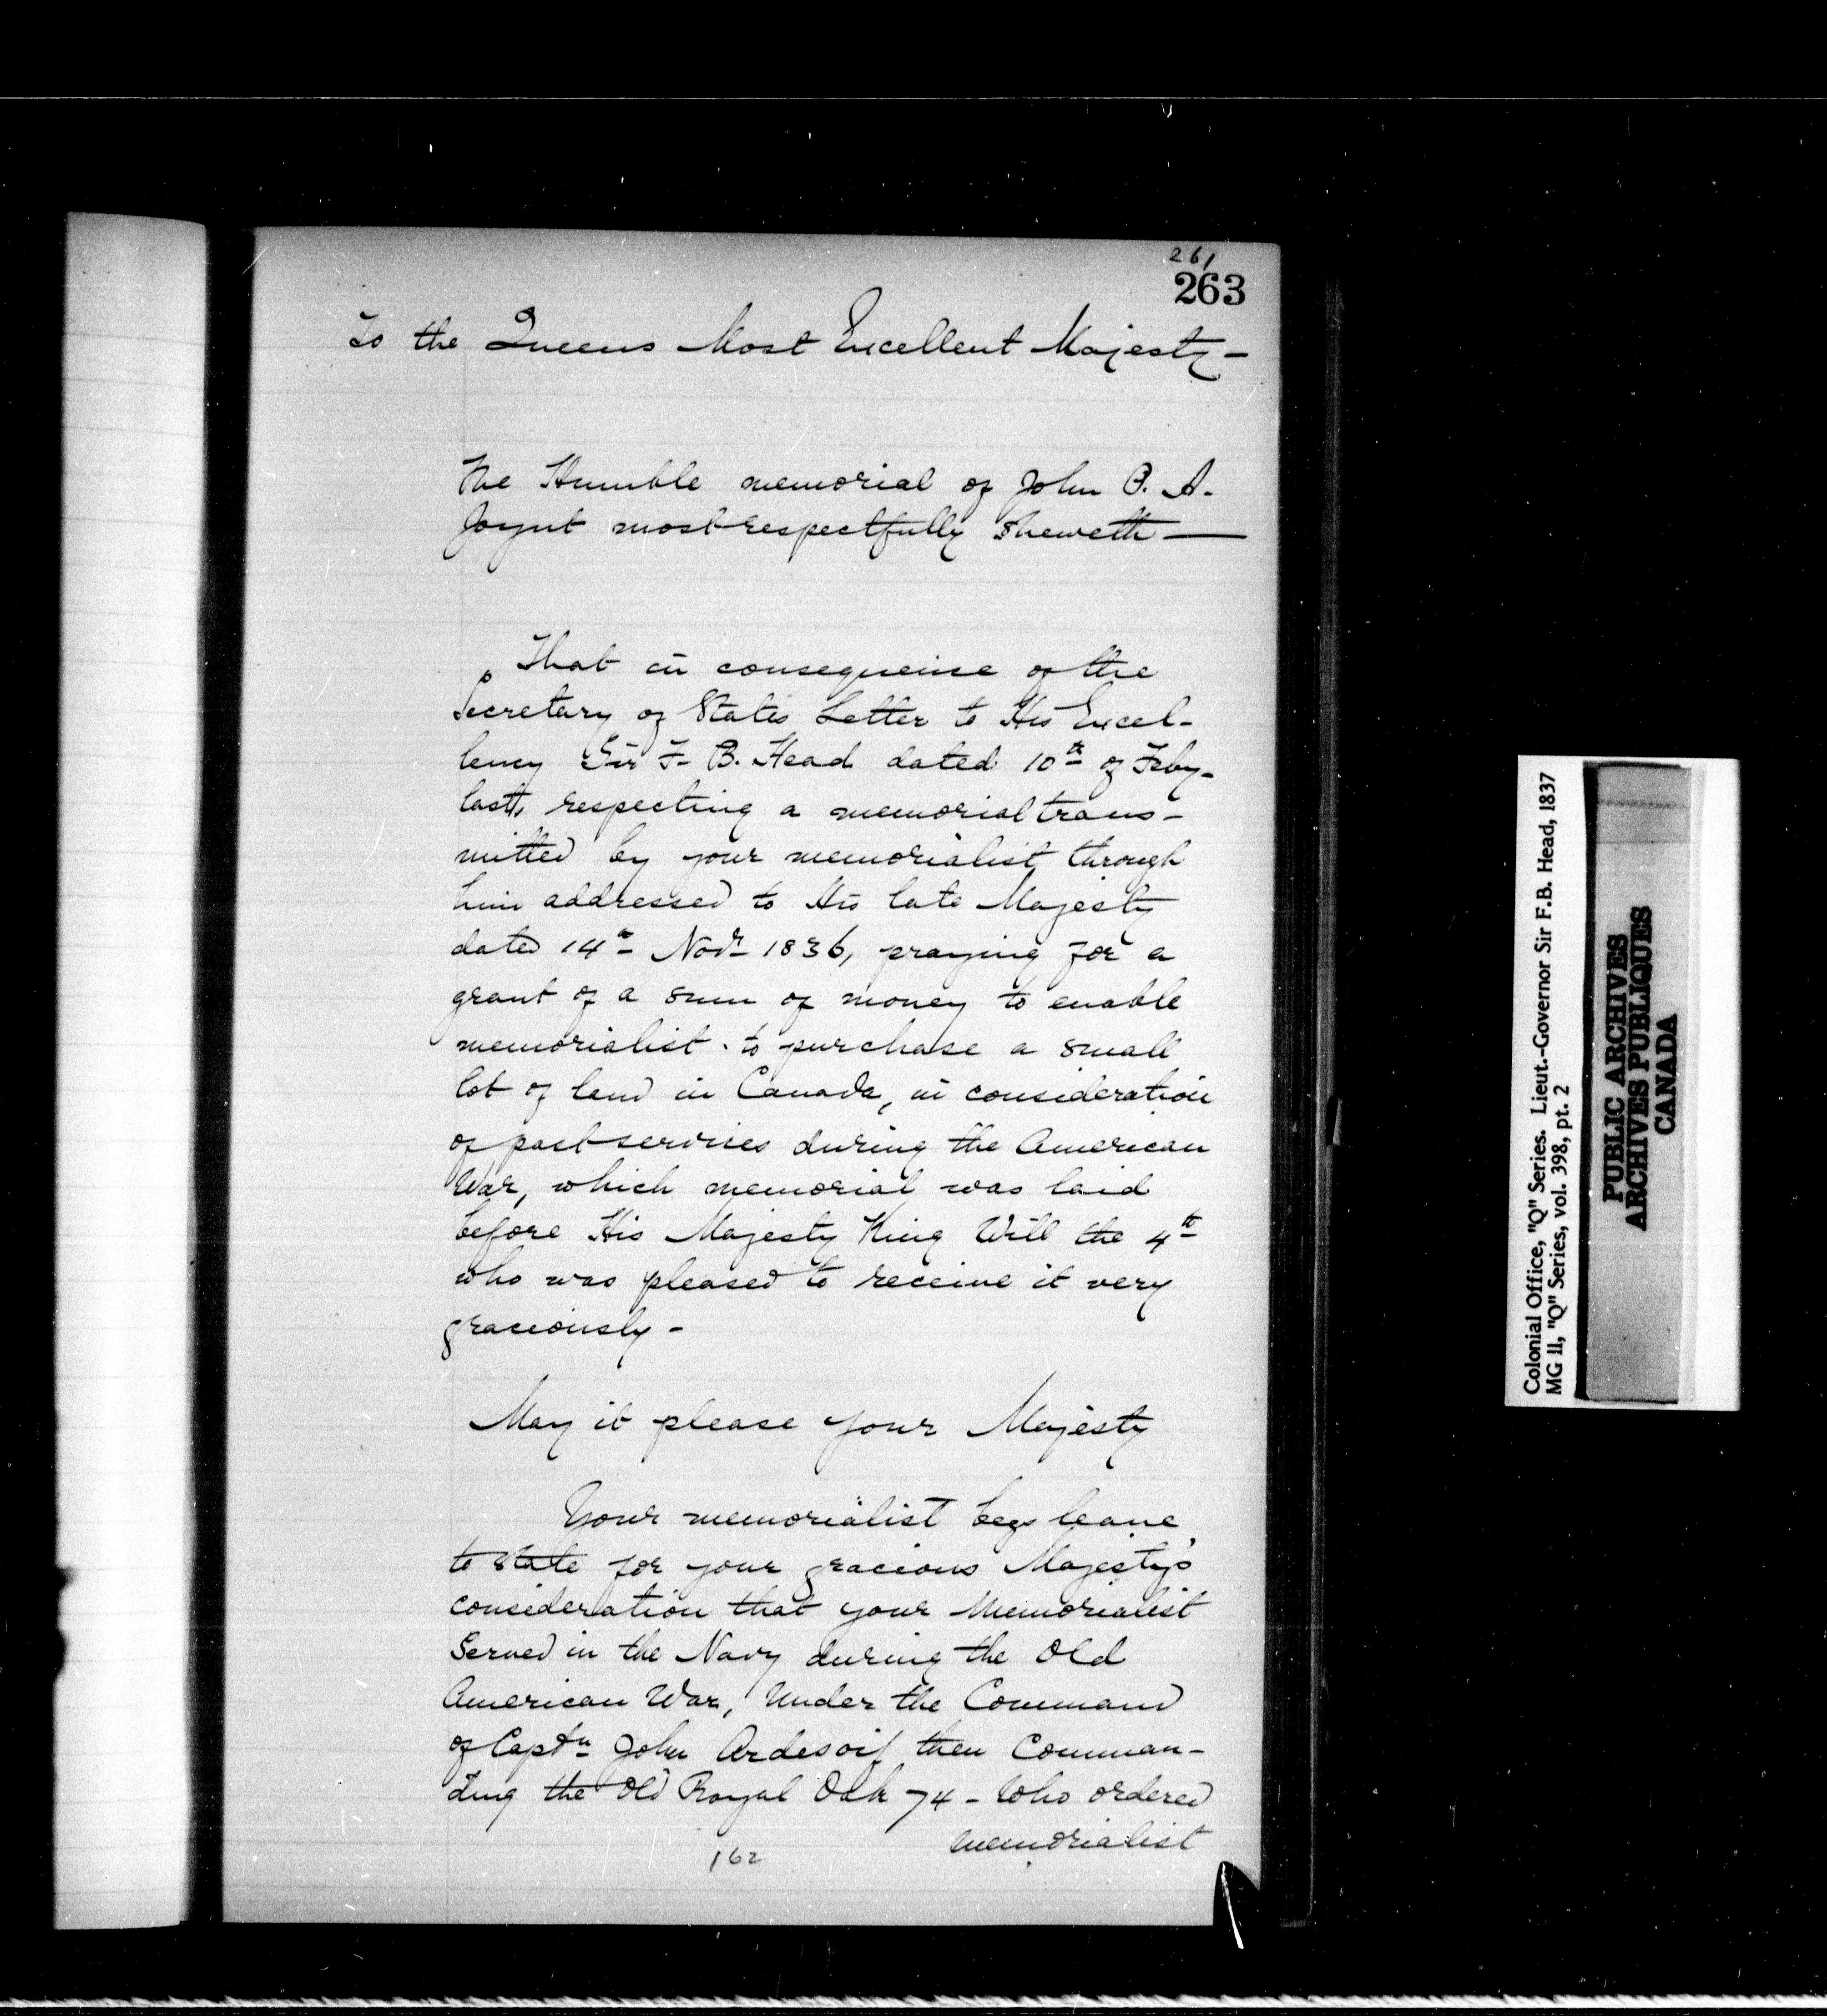 261
263
To the Queens Most Excellent Majesty –
The Humble memorial of John B. A.
Joynt most respectfully sheweth —
That in consequence of the
Secretary of States Letter to His Excel-
lency Sir F. B. Head dated 10th of Feby.
last, respecting a memorial trans-
mitted by your memorialist through
him addressed to His late Majesty
dated 14th Novr 1836, praying for a
grant of a sum of money to enable
memorialist to purchase a small
lot of land in Canada, in consideration
of past services during the American
War, which memorial was laid
before His Majesty King Will the 4th
who was pleased to receive it very
graciously –
May it please your Majesty
Your memorialist begs leave
to state for your gracious Majesty's
consideration that your Memorialist
Served in the Navy during the Old
American War, Under the Command
of Captn John Ardesoif then Comman-
ding the Old Royal Oak 74 – Who ordered
memorialist
162
Colonial Office, "Q" Series. Lieut.-Governor Sir F.B. Head, 1837
MG 11, "Q" Series, vol. 398, pt. 2
PUBLIC ARCHIVES
ARCHIVES PUBLIQUES
CANADA